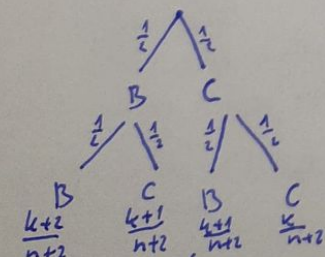 1/2 1/2
B C
1/2 1/2 1/2 1/2
B C B C
k+2/n+2 k+1/n+2 k+1/n+2 k/n+2